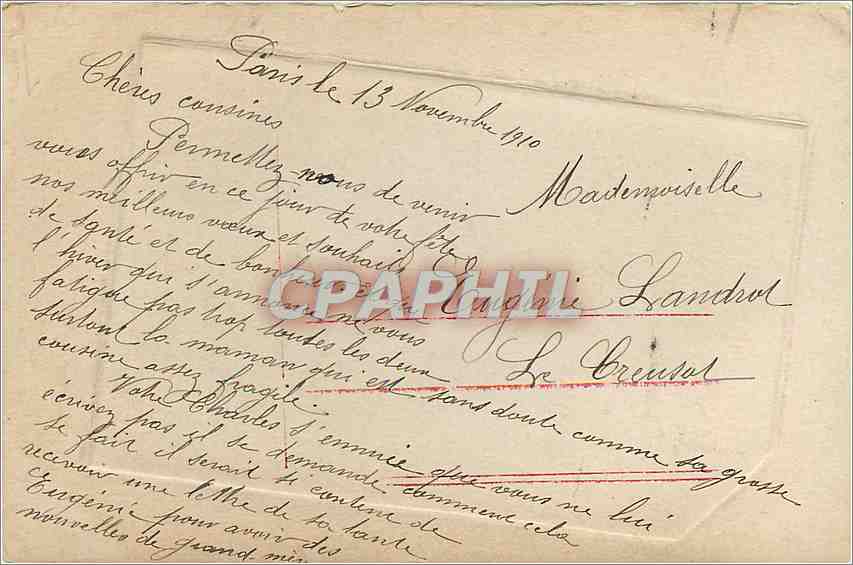 Paris le 13 Novembre 1910
Chères cousines
Permettez-nous de venir
vous offrir en ce jour de votre fête
nos meilleurs vœux et souhaits
de santé et de bonheur
l'hiver qui s'annonce ne vous
fatigue pas trop toutes les deux
surtout la maman qui est sans doute comme sa grosse
cousine assez fragile.
Votre Charles s'ennuie que vous ne lui
écrivez pas il se demande comment cela
se fait il serait si content de
recevoir une lettre de sa tante
Eugénie pour avoir des
nouvelles de grand-mère
Mademoiselle
Eugénie Landrot
Le Creusot
CPAPHIL